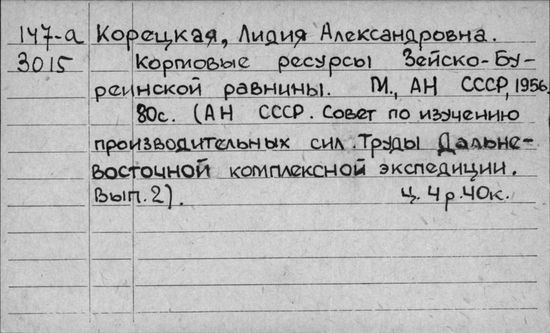 147-а Корецкая, Лидия Александровна.
3015 Кормовые ресурсы Зейско-Бу-
реинской равнины. М., АН СССР, 1956.
80с. (АН СССР. Совет по изучению
производительных сил. Труды Дальне-
восточной комплексной экспедиции.
Вып. 2). Ц. 4р. 40к.